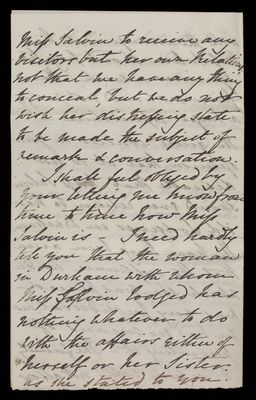 Miss Salvin to receive any
visitors but her own Relatives
not that we have any thing
to conceal, but we do not
wish her distressing state
to be made the subject of
remark & conversation.
I shall feel obliged by
your letting me know from
time to time how Miss
Salvin is - I need hardly
tell you that the woman
in Durham with whom
Miss Salvin lodged has
nothing whatever to do
with the affairs either of
herself or her Sister
as she stated to you.